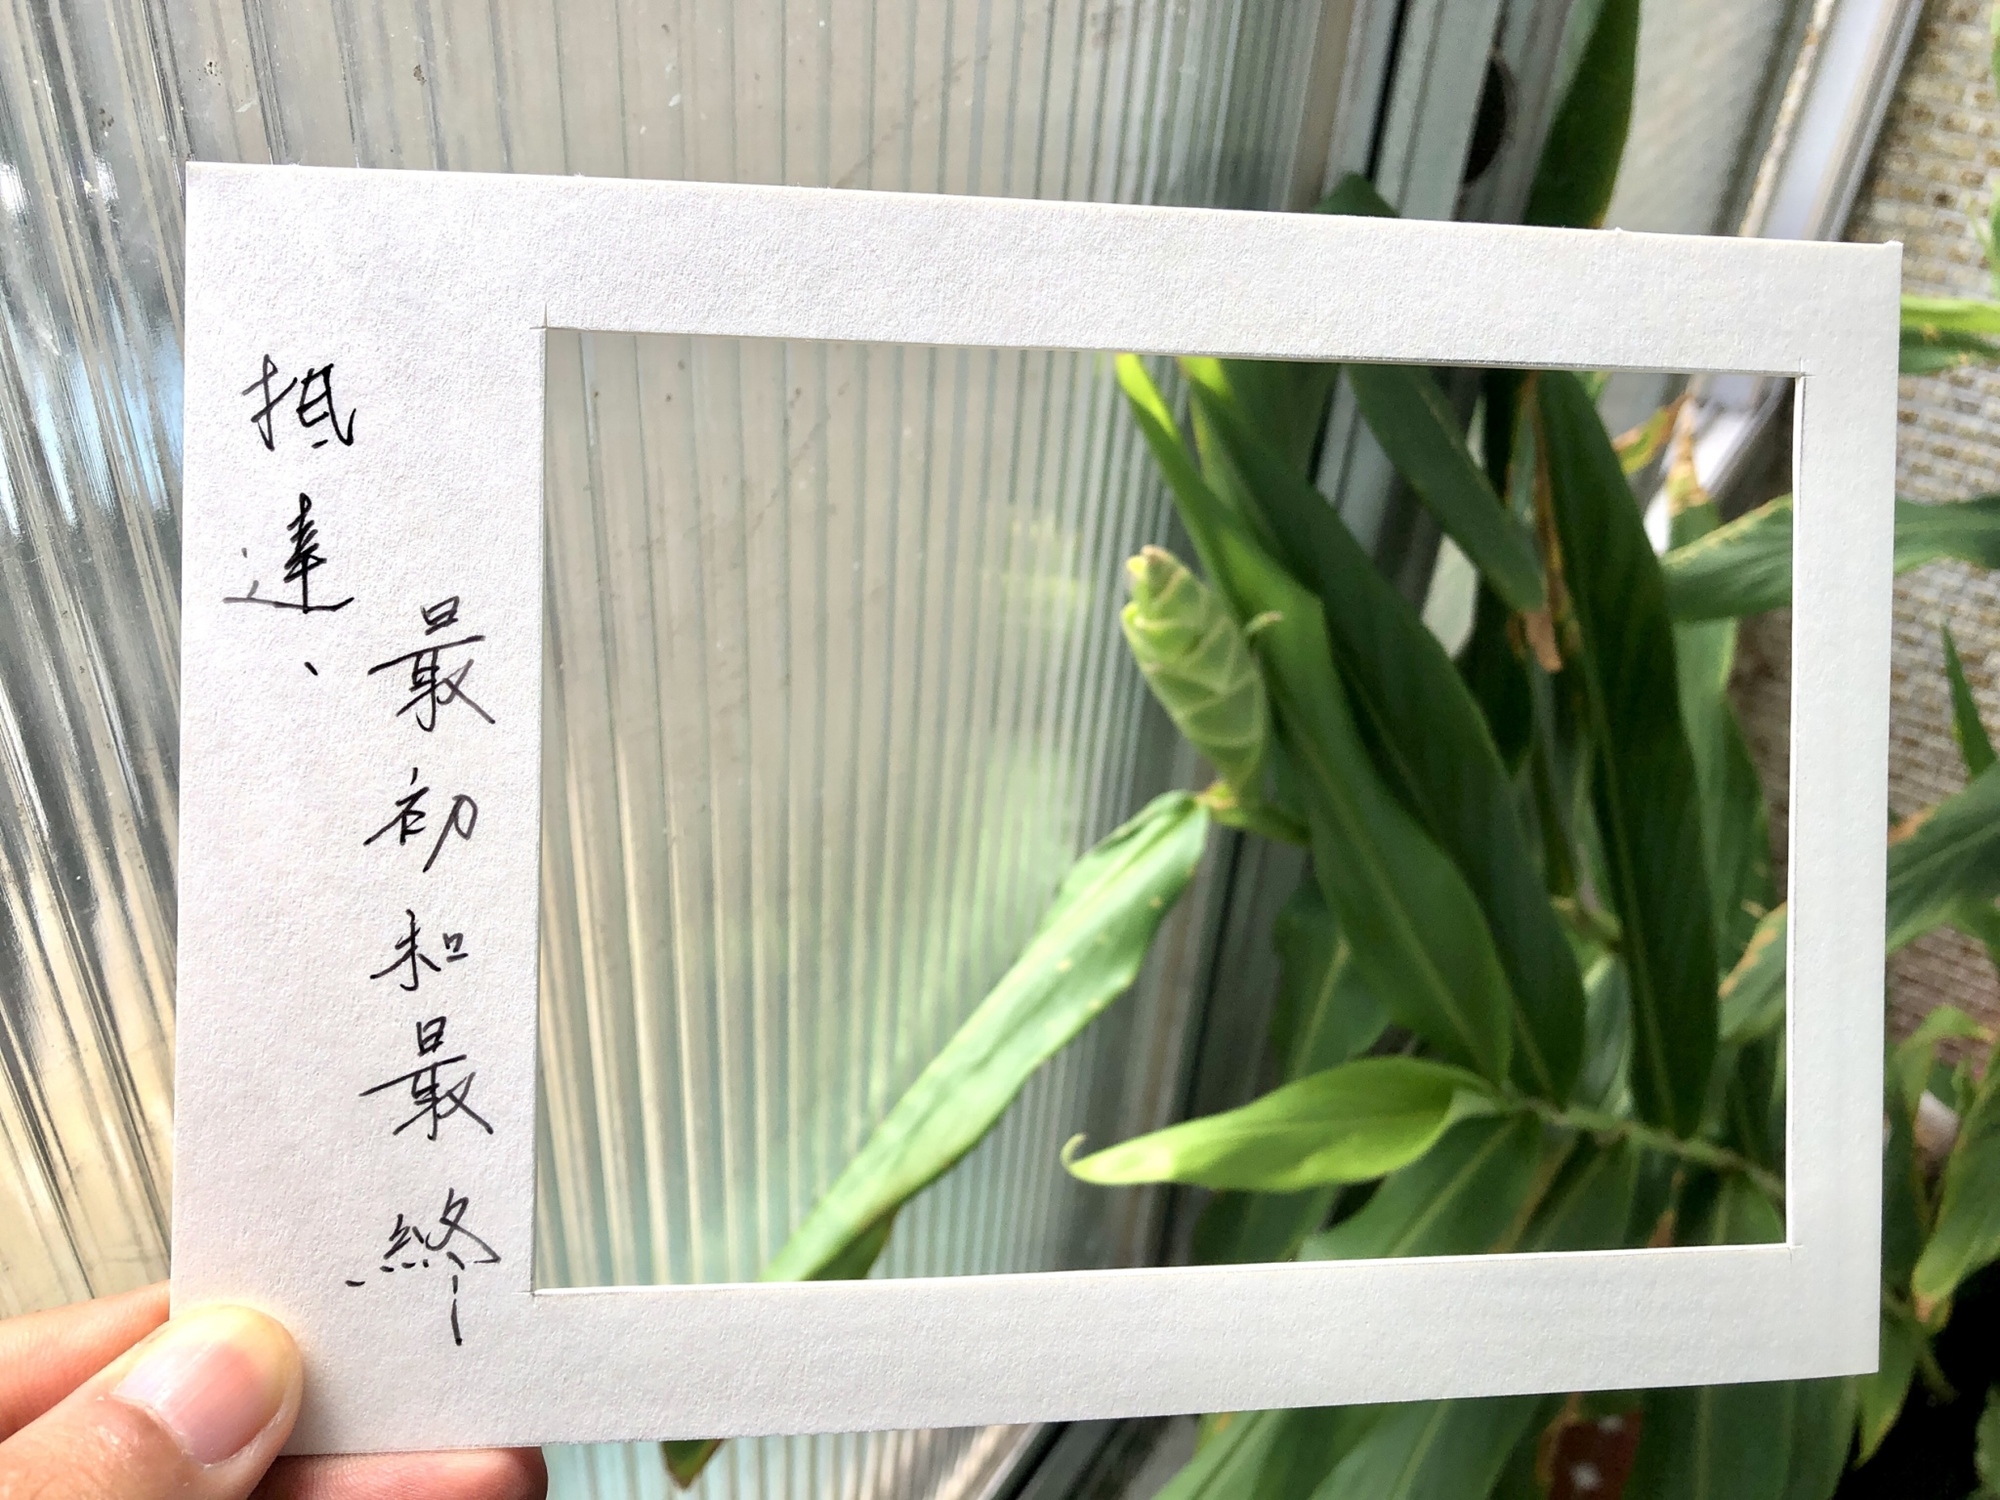 抵達、
最初和最終